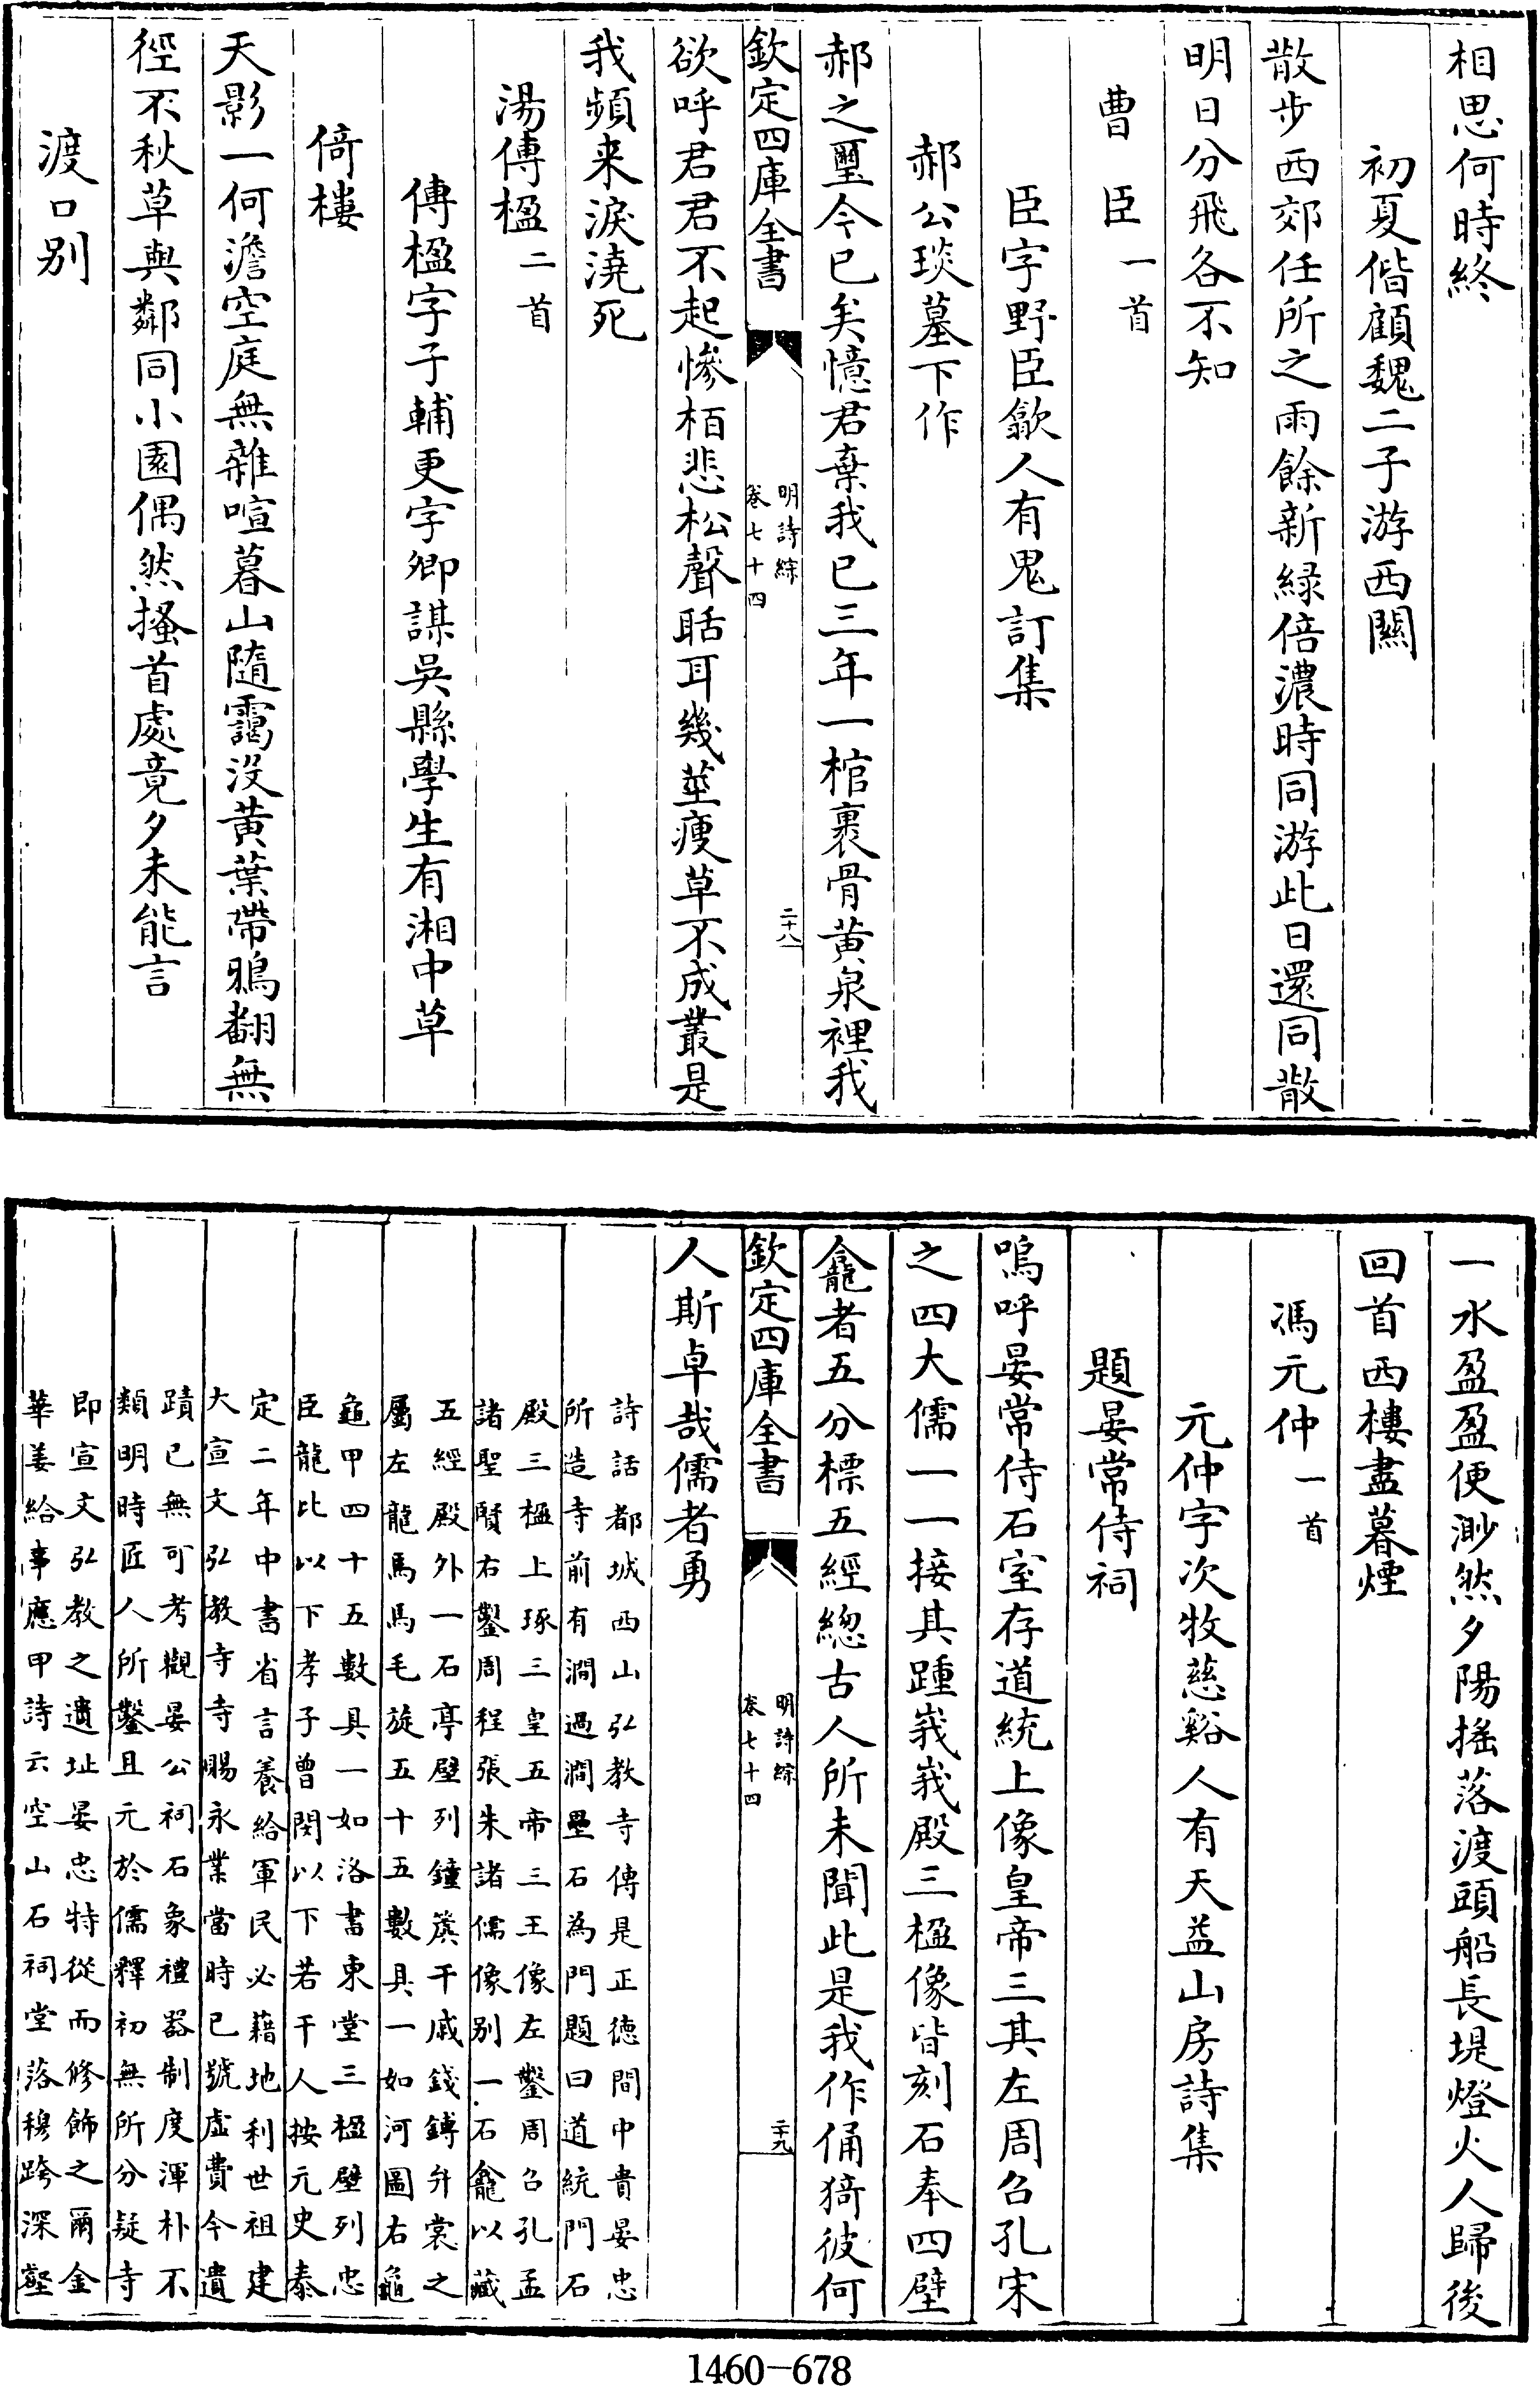 相思何時終
初夏偕顧魏二子游西關
散步西郊任所之雨餘新緑倍濃時同游此日還同散
明日分飛各不知
曹臣一首
臣字野臣歙人有鬼訂集
郝公琰墓下作
郝之璽今已矣憶君棄我已三年一棺裹骨黄泉裡我
欽定四庫全書
明詩綜
卷七十四
二十八
欲呼君君不起慘栢悲松聲聒耳幾莖瘦草不成叢是
我頻来淚澆死
湯傳楹二首
傳楹字子輔更字卿謀吳縣學生有湘中草
倚樓
天影一何澹空庭無雜喧暮山隨靄没黄葉帶鴉翻無
徑不秋草與鄰同小園偶然搔首處竟夕未能言
渡口别
一水盈盈便渺然夕陽摇落渡頭船長堤燈火人歸後
回首西樓盡暮煙
馮元仲一首
元仲字次牧慈谿人有天益山房詩集
題晏常侍祠
嗚呼晏常侍石室存道統上像皇帝三其左周召孔宋
之四大儒一一接其踵峩峩殿三楹像皆刻石奉四壁
龕者五分標五經總古人所未聞此是我作俑猗彼何
欽定四庫全書
明詩綜
卷七十四
二十九
人斯卓哉儒者勇
詩話都城西山弘教寺傳是正德間中貴晏忠
所造寺前有澗過澗壘石為門題曰道統門石
殿三楹上琢三皇五帝三王像左鑿周召孔孟
諸聖賢右鑿周程張朱諸儒像别一石龕以藏
五經殿外一石亭壁列鐘簴干戚錢鎛弁裳之
屬左龍馬馬毛旋五十五數具一如河圖右龜
龜甲四十五數具一如洛書東堂三楹壁列忠
臣龍比以下孝子曾閔以下若干人按元史泰
定二年中書省言養給軍民必藉地利世祖建
大宣文弘教寺寺賜永業當時已號虚費今遺
蹟已無可考觀晏公祠石象禮器制度渾朴不
類明時匠人所鑿且元於儒釋初無所分疑寺
即宣文弘教之遺址晏忠特從而修飾之爾金
華姜給事應甲詩云空山石祠堂落穆跨深壑
1460-678